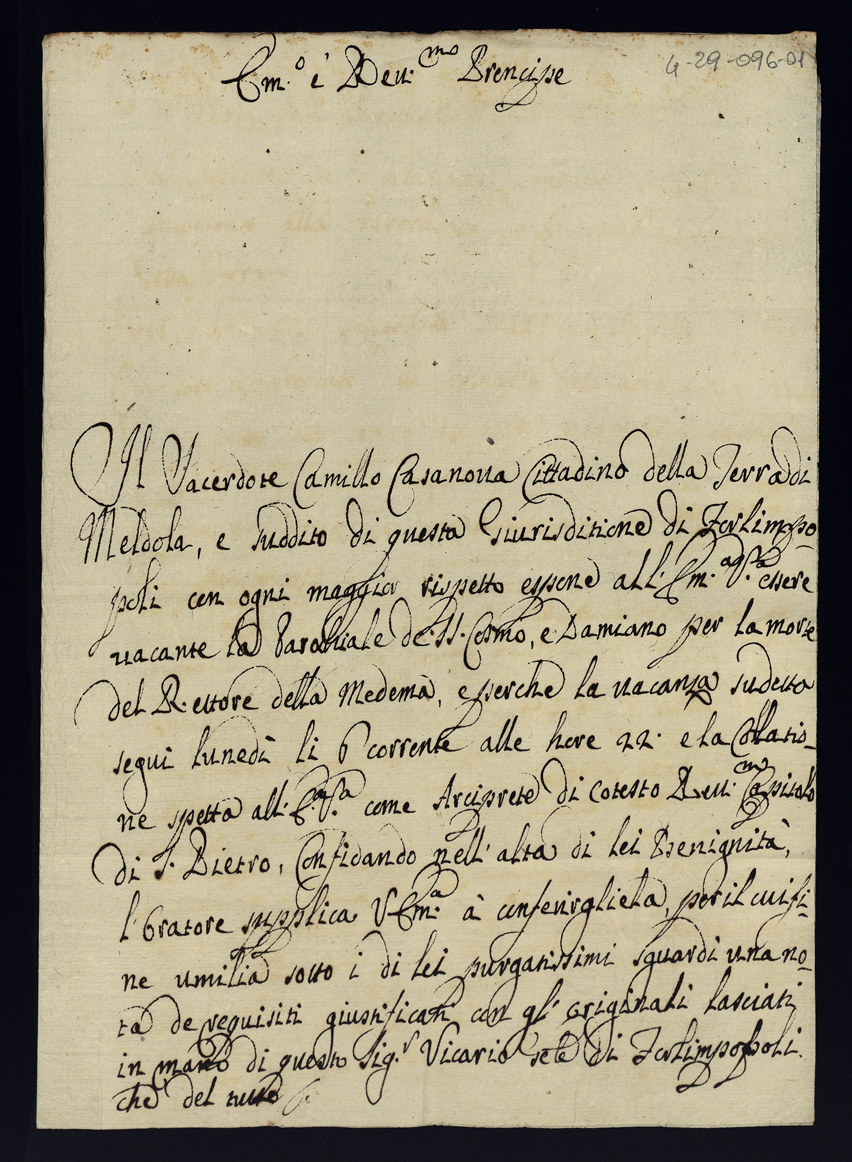 4-29-096-01
Em.o e Reu.mo Prencipe
Il Sacerdote Camillo Casanoua Cittadino della Terra di
Meldola, e suddito di questa Giurisditione di Forlimpo-
poli con ogni maggior rispetto espone all' Em.a V.a essere
uacante la Parochiale de SS. Cosmo, e Damiano per la morte
del Rettore della Medema, e perche la uacanza sudetta
segui lunedì li 6 corrente alle hore 22. e la Collatio-
ne spetta all' Em.a V.a come Arciprete di cotesto Reu.mo Capitolo
di S. Pietro, Confidando nell' alta di lei Benignità,
l'Oratore supplica V Em.a à conferirgliela, per il cui fi-
ne umilia sotto i di lei purgatissimi sguardi una no-
ta de requisiti giustificati con gl' originali lasciati
in mano di questo Sig.r Vicario di Forlimpopoli.
che del tutto